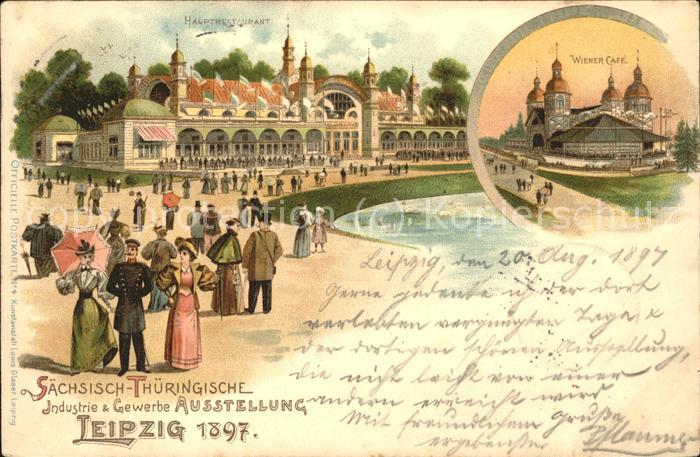 HAUPTRESTAURANT
WIENER CAFÉ.
OFFICIELLE POSTKARTE No 4 Kunstanstalt Louis Glaser, Leipzig
Leipzig, den 20. Aug. 1897
Gerne gedenke ich der dort
verlebten vergnügten Tage &
der dortigen schönen Ausstellung,
die nicht leicht von einer
andern erreicht wird
Mit freundlichem Gruße
ergebenster Pflaumer
SÄCHSISCH-THÜRINGISCHE
Industrie & Gewerbe AUSSTELLUNG
LEIPZIG 1897.